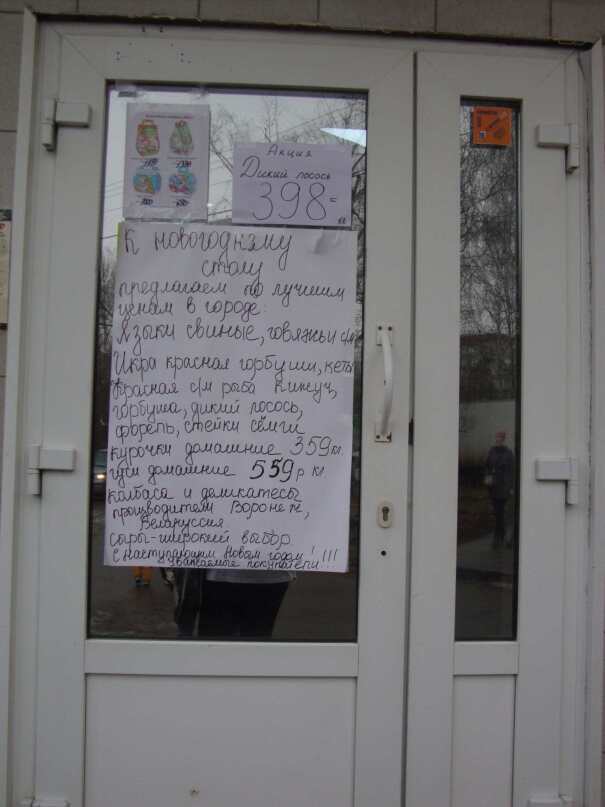 Акция
Дикий лосось
398=
кг
К новогоднэму
столу
предлагаем по лучшим
ценам в городе:
Языки свиные, говяжьи с/м
Икра красная горбуши, кеты
Красная с/м рыба Кижуч,
горбуша, дикий лосось,
форель, стейки сёмги
курочки домашние 359 кг.
гуси домашние 559 р кг.
Колбаса и деликатесы
производители Воронеж,
Белаruссия
сыры-широкий выбор
с наступающим Новым годом! !!!
уважаемые покупатели!..